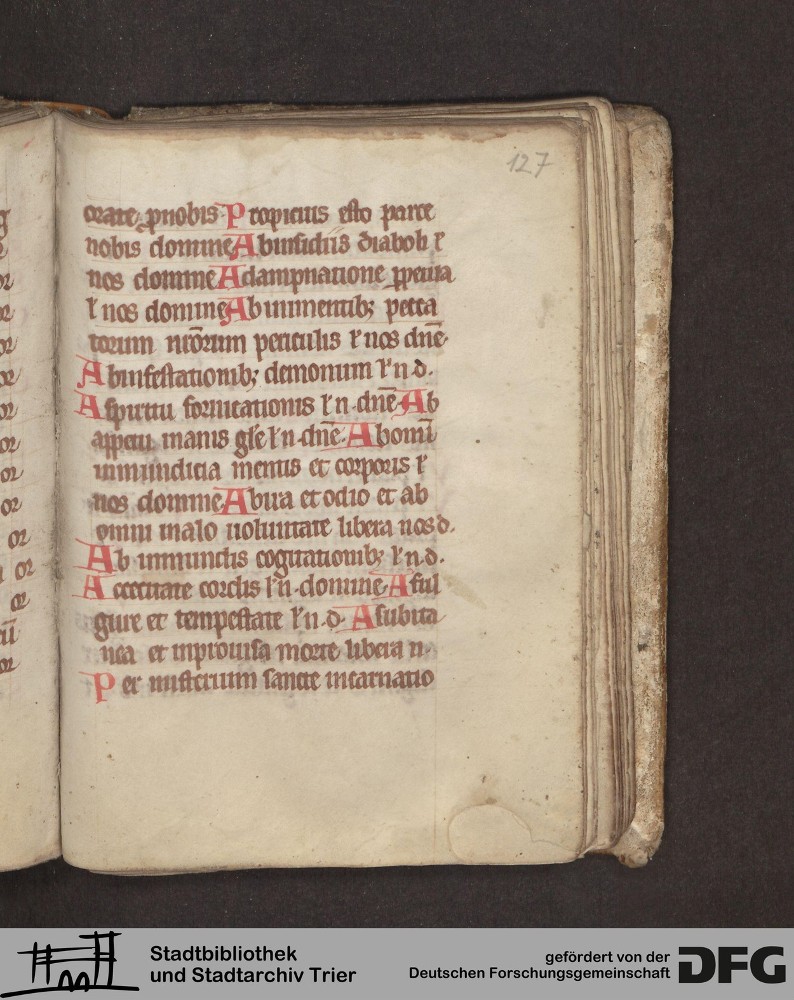 127
orate ꝓnobis· Propicius esto parce
nobis domine Abinsidiis diaboli ł
nos domine Adampnatione ꝑpetua
ł nos domine Abinminentibꝫ pecca
torum nr̄orum periculis ł nos dn̄e·
Abinfestationibꝫ demonum ł n d.
Aspiritu fornicationis ł n·dn̄e· Ab
appetitu inanis gl̄e ł n·dn̄e· Abomī
inmundicia mentis et corporis ł
nos domine Abira et odio et ab
omni mala uoluntate libera nos d·
Ab inmundis cogitationibꝫ ł n·d·
A cecitate cordis ł n·domine Aful
gure et tempestate ł n·d· Asubita
nea et inprouisa morte libera n·
Per misterium sancte incarnatio
g
or
or
or
or
or
or
or
or
or
or
or
or
or
Stadtbibliothek
und Stadtarchiv Trier
gefördert von der
Deutschen Forschungsgemeinschaft
DFG